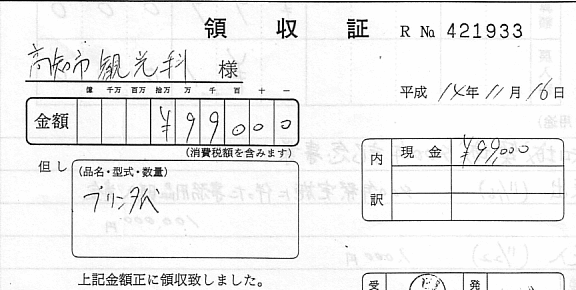 領収証 R № 421933
高知市観光科 様
平成 14年 11月 16日
億 千万 百万 拾万 万 千 百 十 一
金額 ¥99000
(消費税額を含みます)
内訳 現金 ¥99,000
但し (品名・型式・数量)
プリンタ代
上記金額正に領収致しました。
受 発